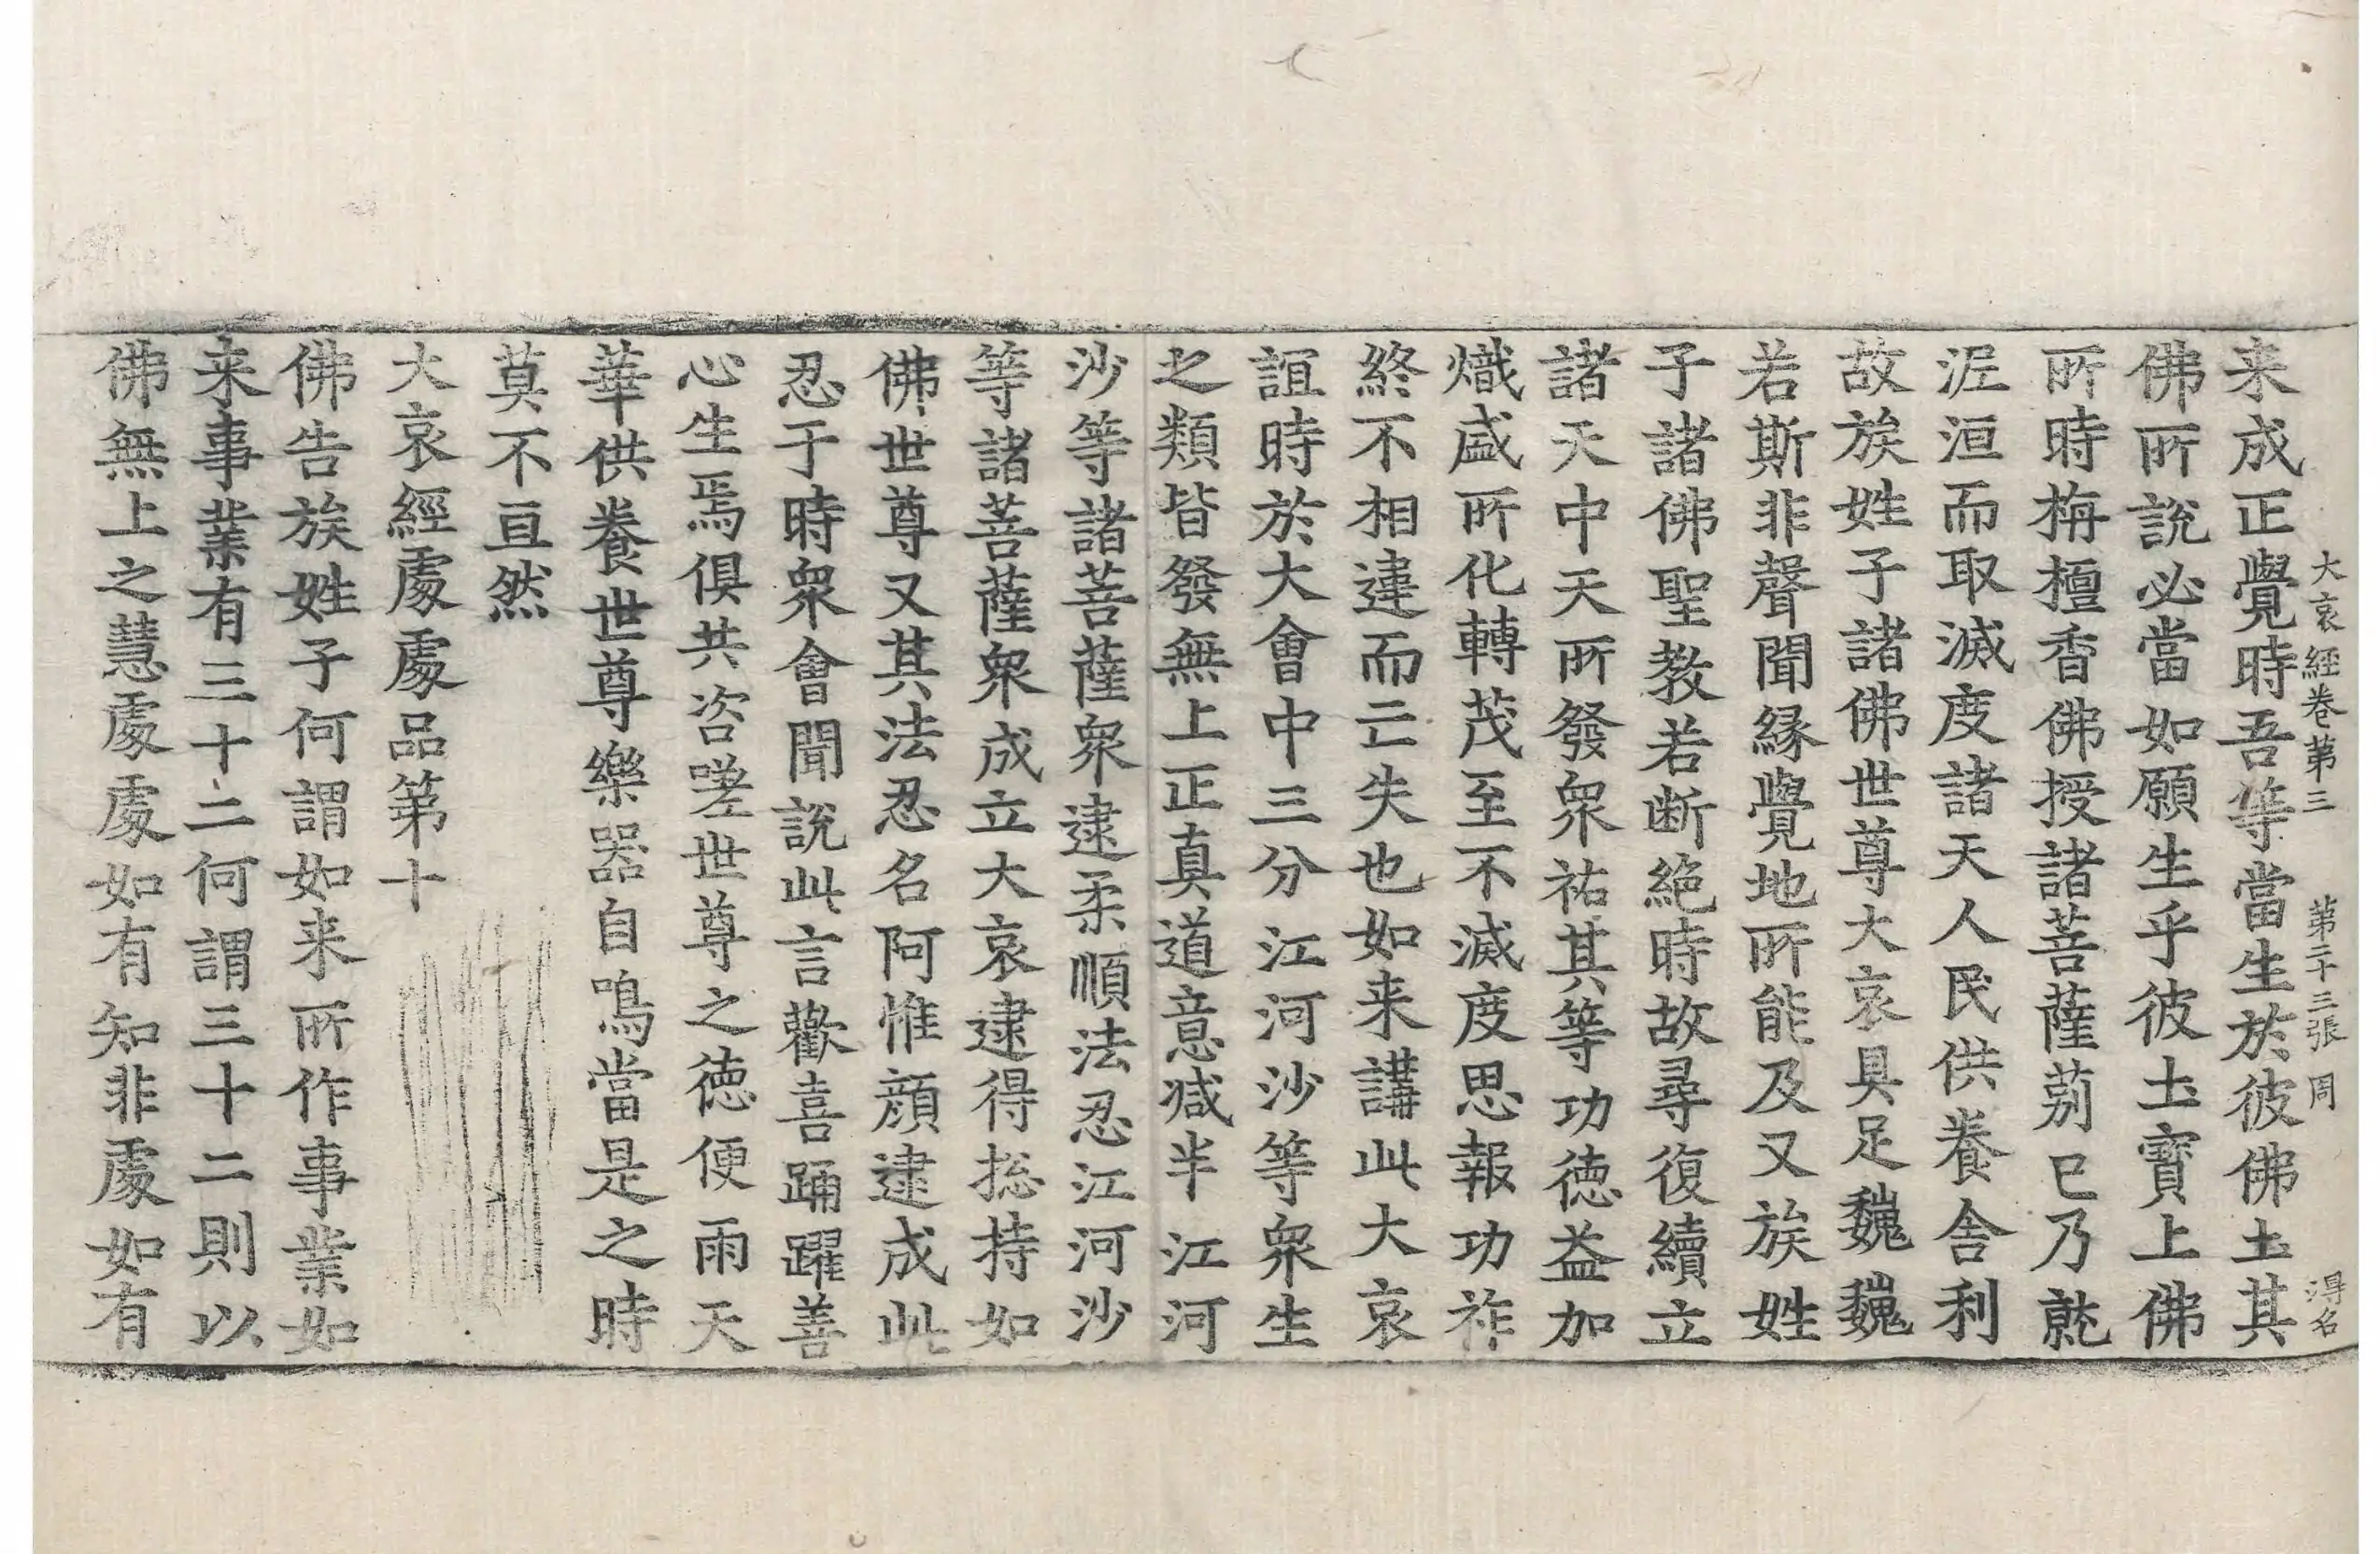 大哀經卷第三　第二十三張　周　得名
来成正覺時吾等當生於彼佛土其
佛所說必當如願生乎彼土寶上佛
所時栴檀香佛授諸菩薩莂已乃就
泥洹而取滅度諸天人民供養舍利
故族姓子諸佛世尊大哀具足巍巍
若斯非聲聞縁覺地所能及又族姓
子諸佛聖教若断絕時故尋復續立
諸天中天所發衆祐其等功德益加
熾盛所化轉茂至不滅度思報功祚
終不相違而亡失也如来講此大哀
誼時於大會中三分江河沙等衆生
之類皆發無上正真道意減半江河
沙等諸菩薩衆逮柔順法忍江河沙
等諸菩薩衆成立大哀逮得揔持如
佛世尊又其法忍名阿惟顔逮成此
忍于時衆會聞說此言歡喜踊躍善
心生焉俱共咨嗟世尊之德便雨天
華供養世尊樂器自鳴當是之時
莫不亘然
大哀經處處品第十
佛告族姓子何謂如来所作事業如
来事業有三十二何謂三十二則以
佛無上之慧處處如有知非處如有